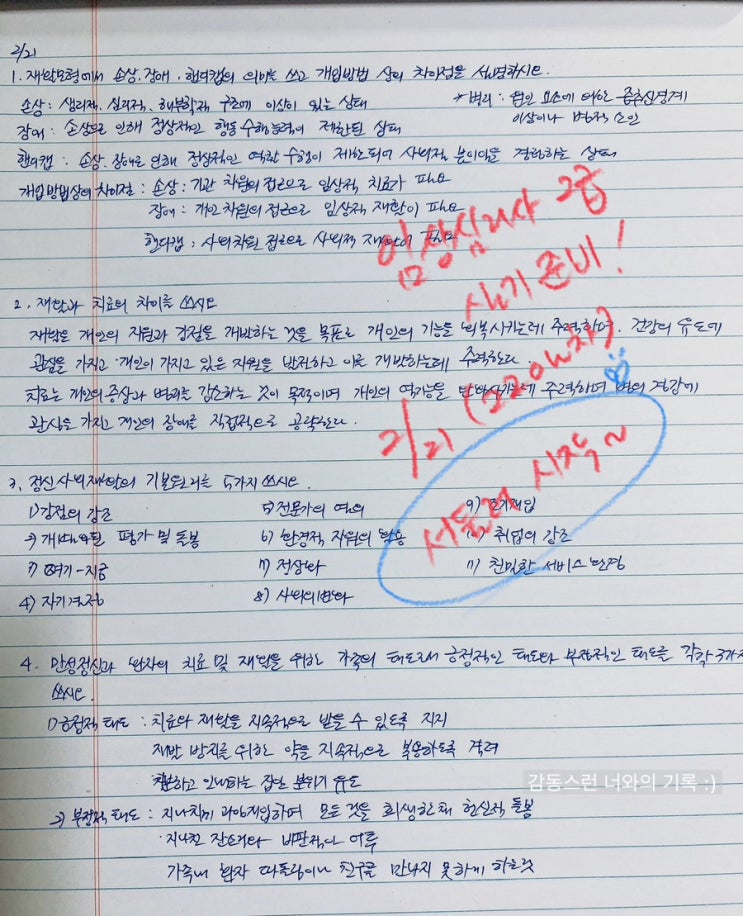 2/21
1. 재활모형에서 손상, 장애, 핸디캡의 의미를 쓰고 개입방법 상의 차이점을 설명하시오.
손상 : 생리적, 심리적, 해부학적 구조에 이상이 있는 상태
*병리 : 원인 요소에 의한 중추신경계
이상이나 병적 소인
장애 : 손상으로 인해 정상적인 행동 수행 능력이 제한된 상태
핸디캡 : 손상, 장애로 인해 정상적인 역할 수행이 제한되어 사회적 불이익을 경험하는 상태
개입방법상의 차이점 : 손상 : 기관 차원의 접근으로 임상적 치료가 필요
장애 : 개인 차원의 접근으로 임상적 재활이 필요
핸디캡 : 사회차원 접근으로 사회적 재활이
임상심리사 2급
실기 준비!
2. 재활과 치료의 차이를 쓰시오
재활은 개인의 자원과 강점을 개발하는 것을 목표로 개인의 기능을 회복시키는데 주력하며, 건강의 유도에
관심을 가지고 개인이 가지고 있은 자원을 발전하고 이를 개발하는데 주력한다.
치료는 개인의 증상과 병리를 감소하는 것이 목적이며 개인의 역기능을 주력하며 병의 경감에
관심을 가지고 개인의 장애를 직접적으로 공략한다.
2/21 (220일차)
서둘러 시작~
3. 정신사회재활의 기본원리를 5가지 쓰시오.
1) 강점의 강조
5) 전문가의
9) 조기개입
2) 개별화된 평가 및 돌봄
6) 환경적 자원의 활용
취업의 강조
3) 여기-지금
7) 정상화
11) 친밀한 서비스 환경
4) 자기결정
8) 사회의 변화
4. 만성정신과 환자의 치료 및 재활을 위한 가족의 태도로서 긍정적인 태도와 부정적인 태도를 각각 3가지
쓰시오.
1) 긍정적 태도 : 치료와 재활을 지속적으로 받을 수 있도록 지지
재발 방지를 위한 약을 지속적으로 복용하도록 격려
하고 인내하는 집안 분위기 유도
감동스런 너와의 기록 :)
2) 부정적 태도 : 지나치게 과잉개입하며 모든 것을 희생한채 헌신적 돌봄
지나친 잔소리와 비판적인
가족내 환자 따돌림이나 친구를 만나지 못하게 하는것